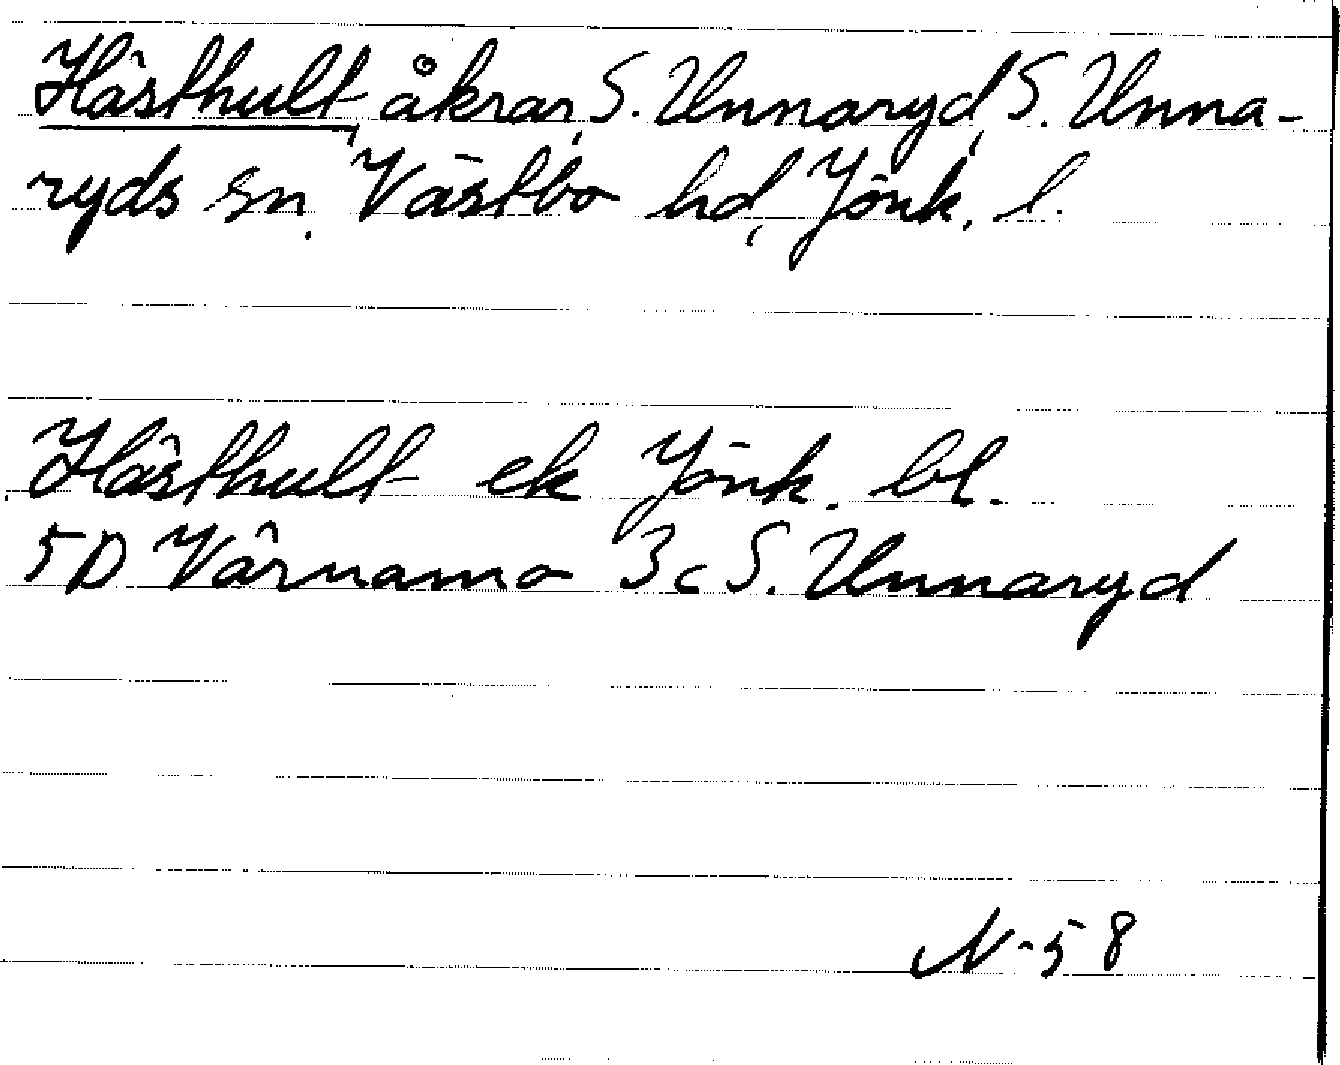 Hästhult, åkrar, S. Unnaryd, S. Unna-
ryds sn. Västbo hd, Jönk. l.
Hästhult ek Jönk. bl.
5D Värnamo 3c S. Unnaryd
N-58